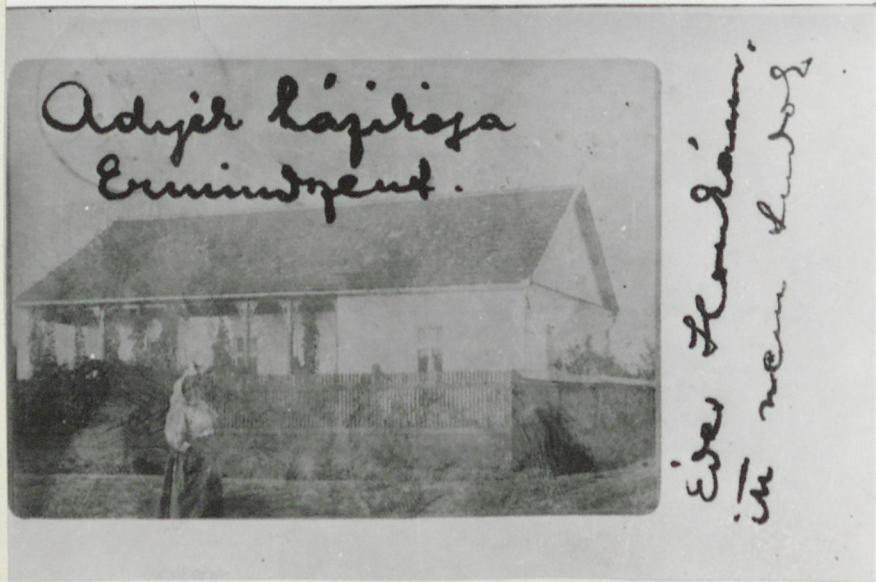 Adyék házikója
Érmindszent.
Édes
itt nem tudok